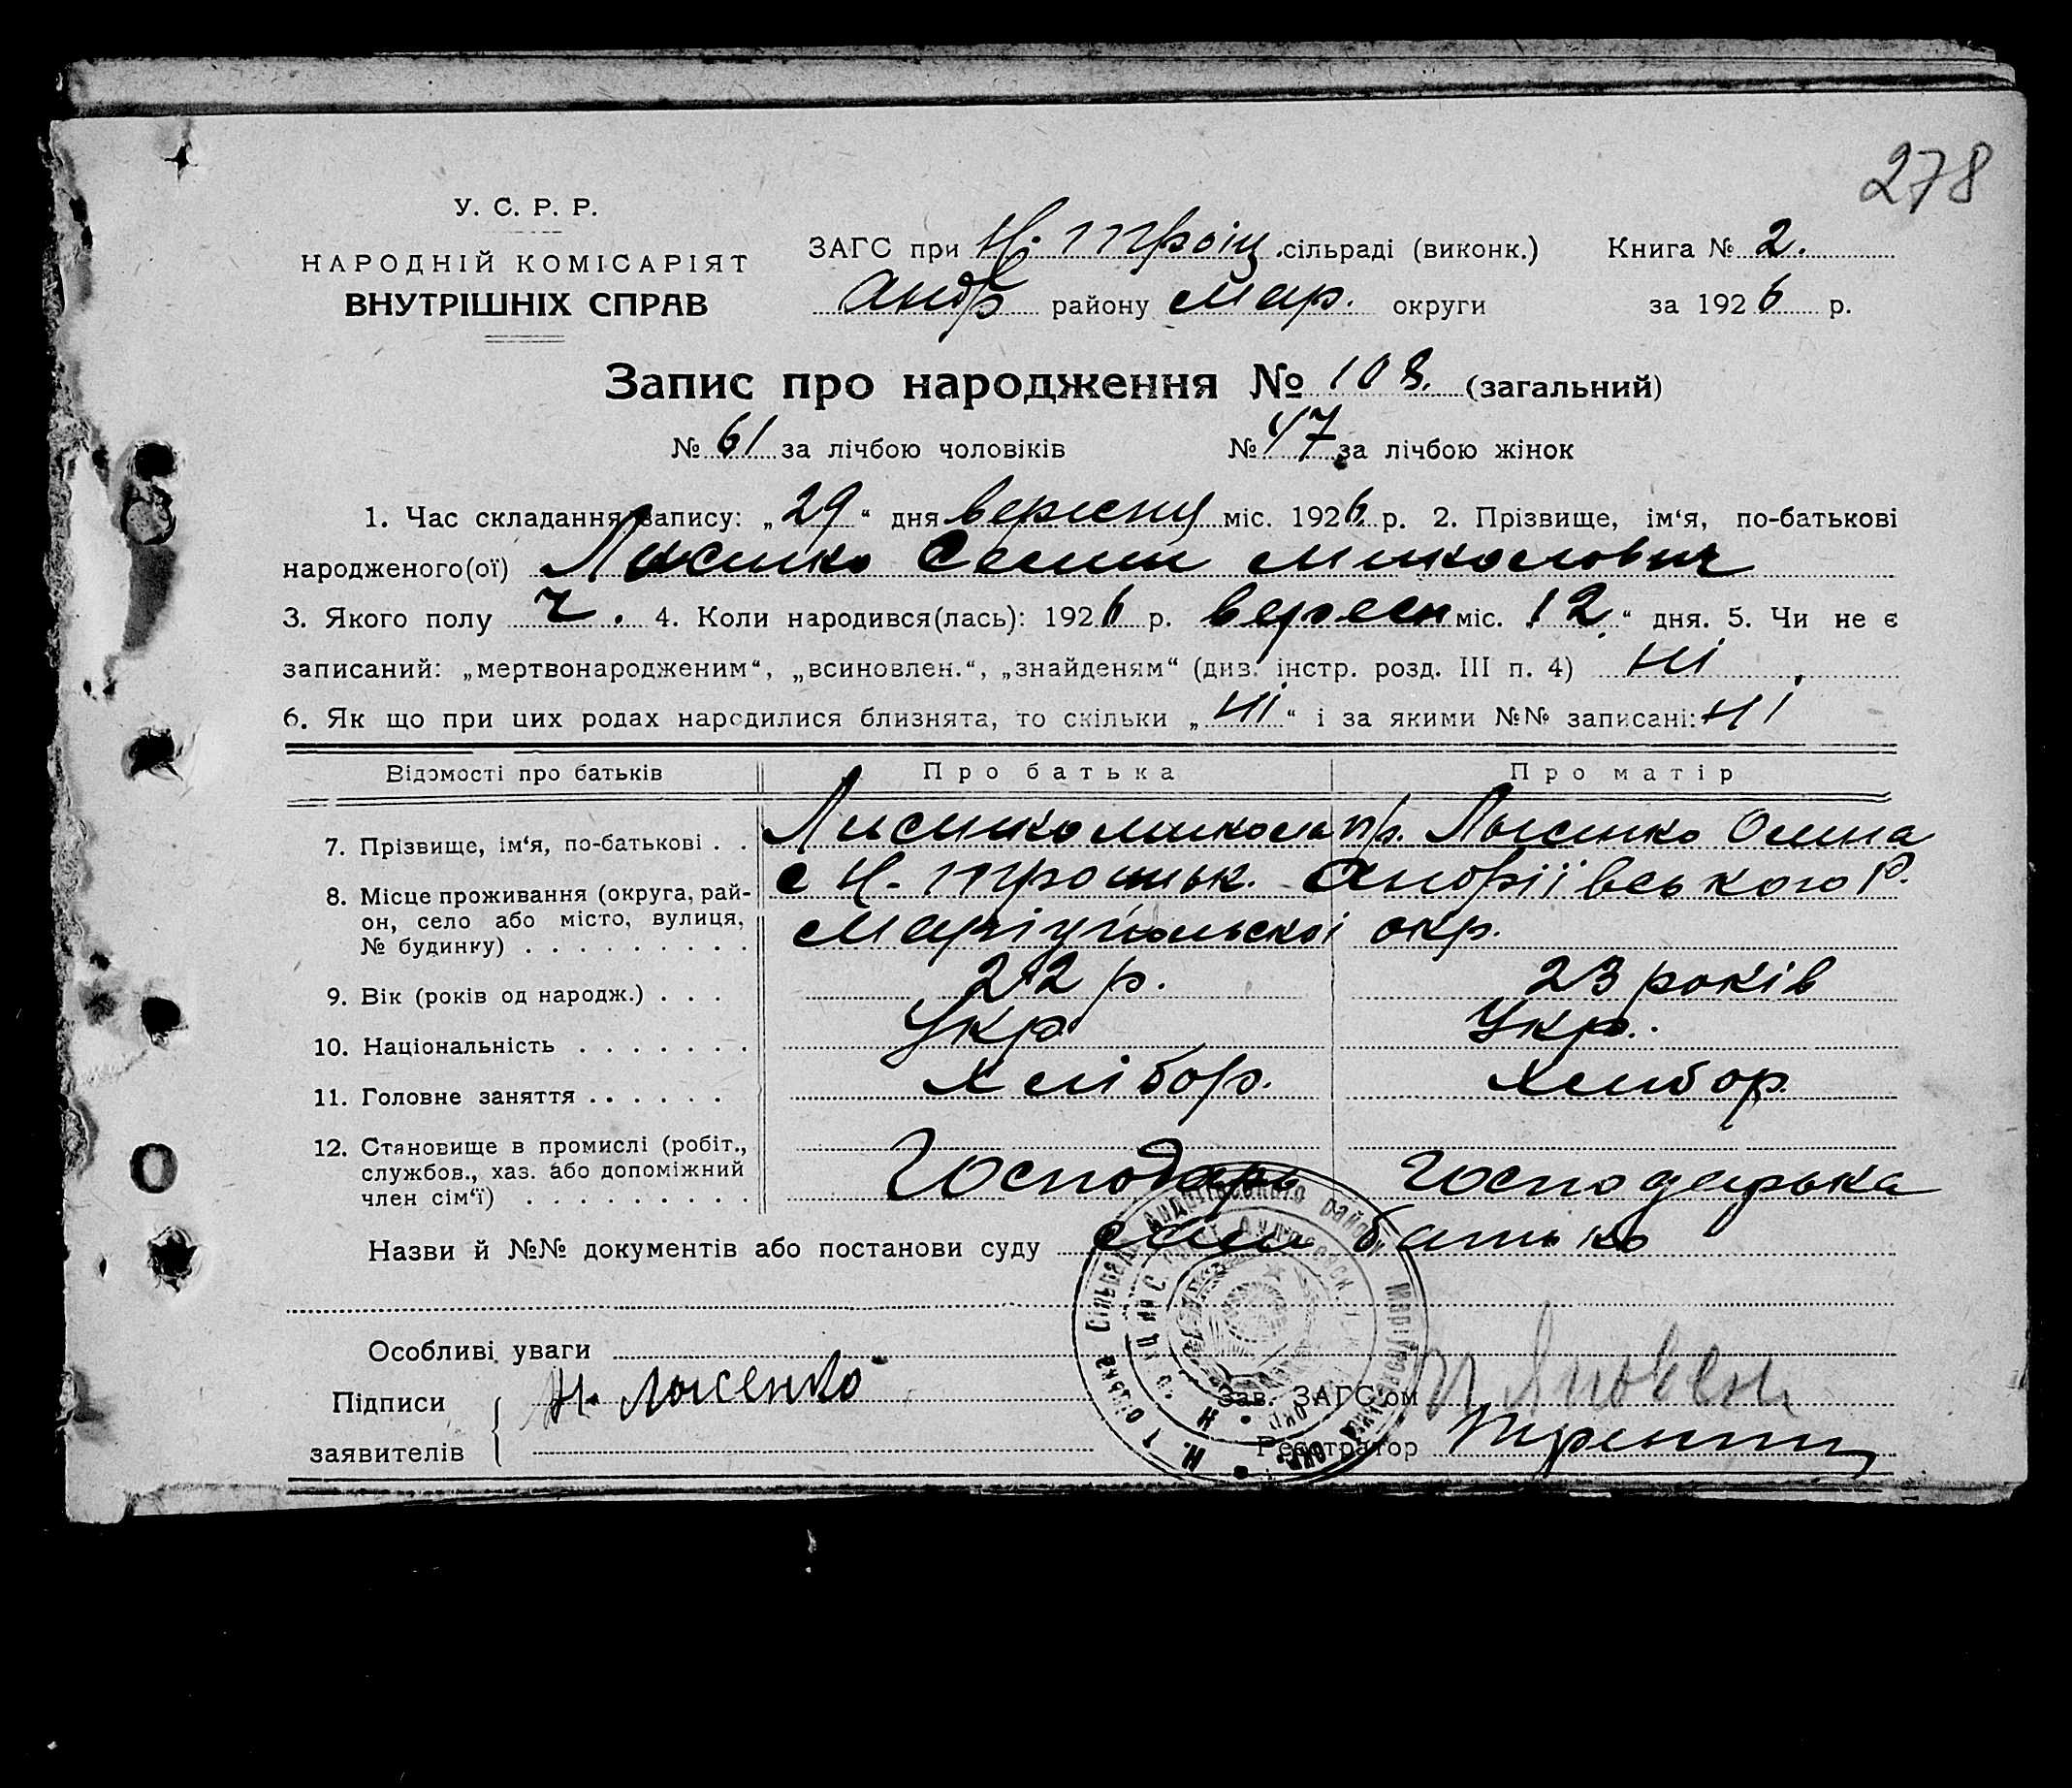 278
У. С. Р. Р.
НАРОДНІЙ КОМІСАРІЯТ
ВНУТРІШНІХ СПРАВ
ЗАГС при Н. Троіц. сільраді (виконк.) Книга № 2.
Андр району Мар. округи за 1926 р.
Запис про народження № 108. (загальний)
№ 61 за лічбою чоловіків № 47 за лічбою жінок
1. Час складання запису: „29“ дня вересня міс. 1926 р. 2. Прізвище, ім‘я, по-батькові
народженого(ої) Лисинко Семин Миколович
3. Якого полу ч. 4. Коли народився(лась): 1926 р. вересн міс. 12 “ дня. 5. Чи не є
записаний: „мертвонародженим“, „всиновлен.“, „знайденям“ (див. інстр. розд. III п. 4) ні
6. Як що при цих родах народилися близнята, то скільки „ні“ і за якими №№ записані: ні
Відомості про батьків Про батька Про матір
7. Прізвище, ім‘я, по-батькові . . Лисинко Микола пр. Лысинко
8. Місце проживання (округа, рай-
он, село або місто, вулиця,
№ будинку) . . . . . . . . .
с Н. Троицьк. Андріївського Р.
Маріупольскої окр.
9. Вік (років од народж.) . . . 22 р. 23 років
10. Національність . . . . . . . Укр Укр.
11. Головне заняття . . . . . . Хлібор. Хлибор.
12. Становище в промислі (робіт.,
службов., хаз. або допоміжний
член сім‘ї) . . . . . . . . .
Господарь Господарька
Назви й №№ документів або постанови суду сам батько
Особливі уваги
Підписи
заявителів
Н. Лысенко
Зав. ЗАГС‘ом
Реєстратор